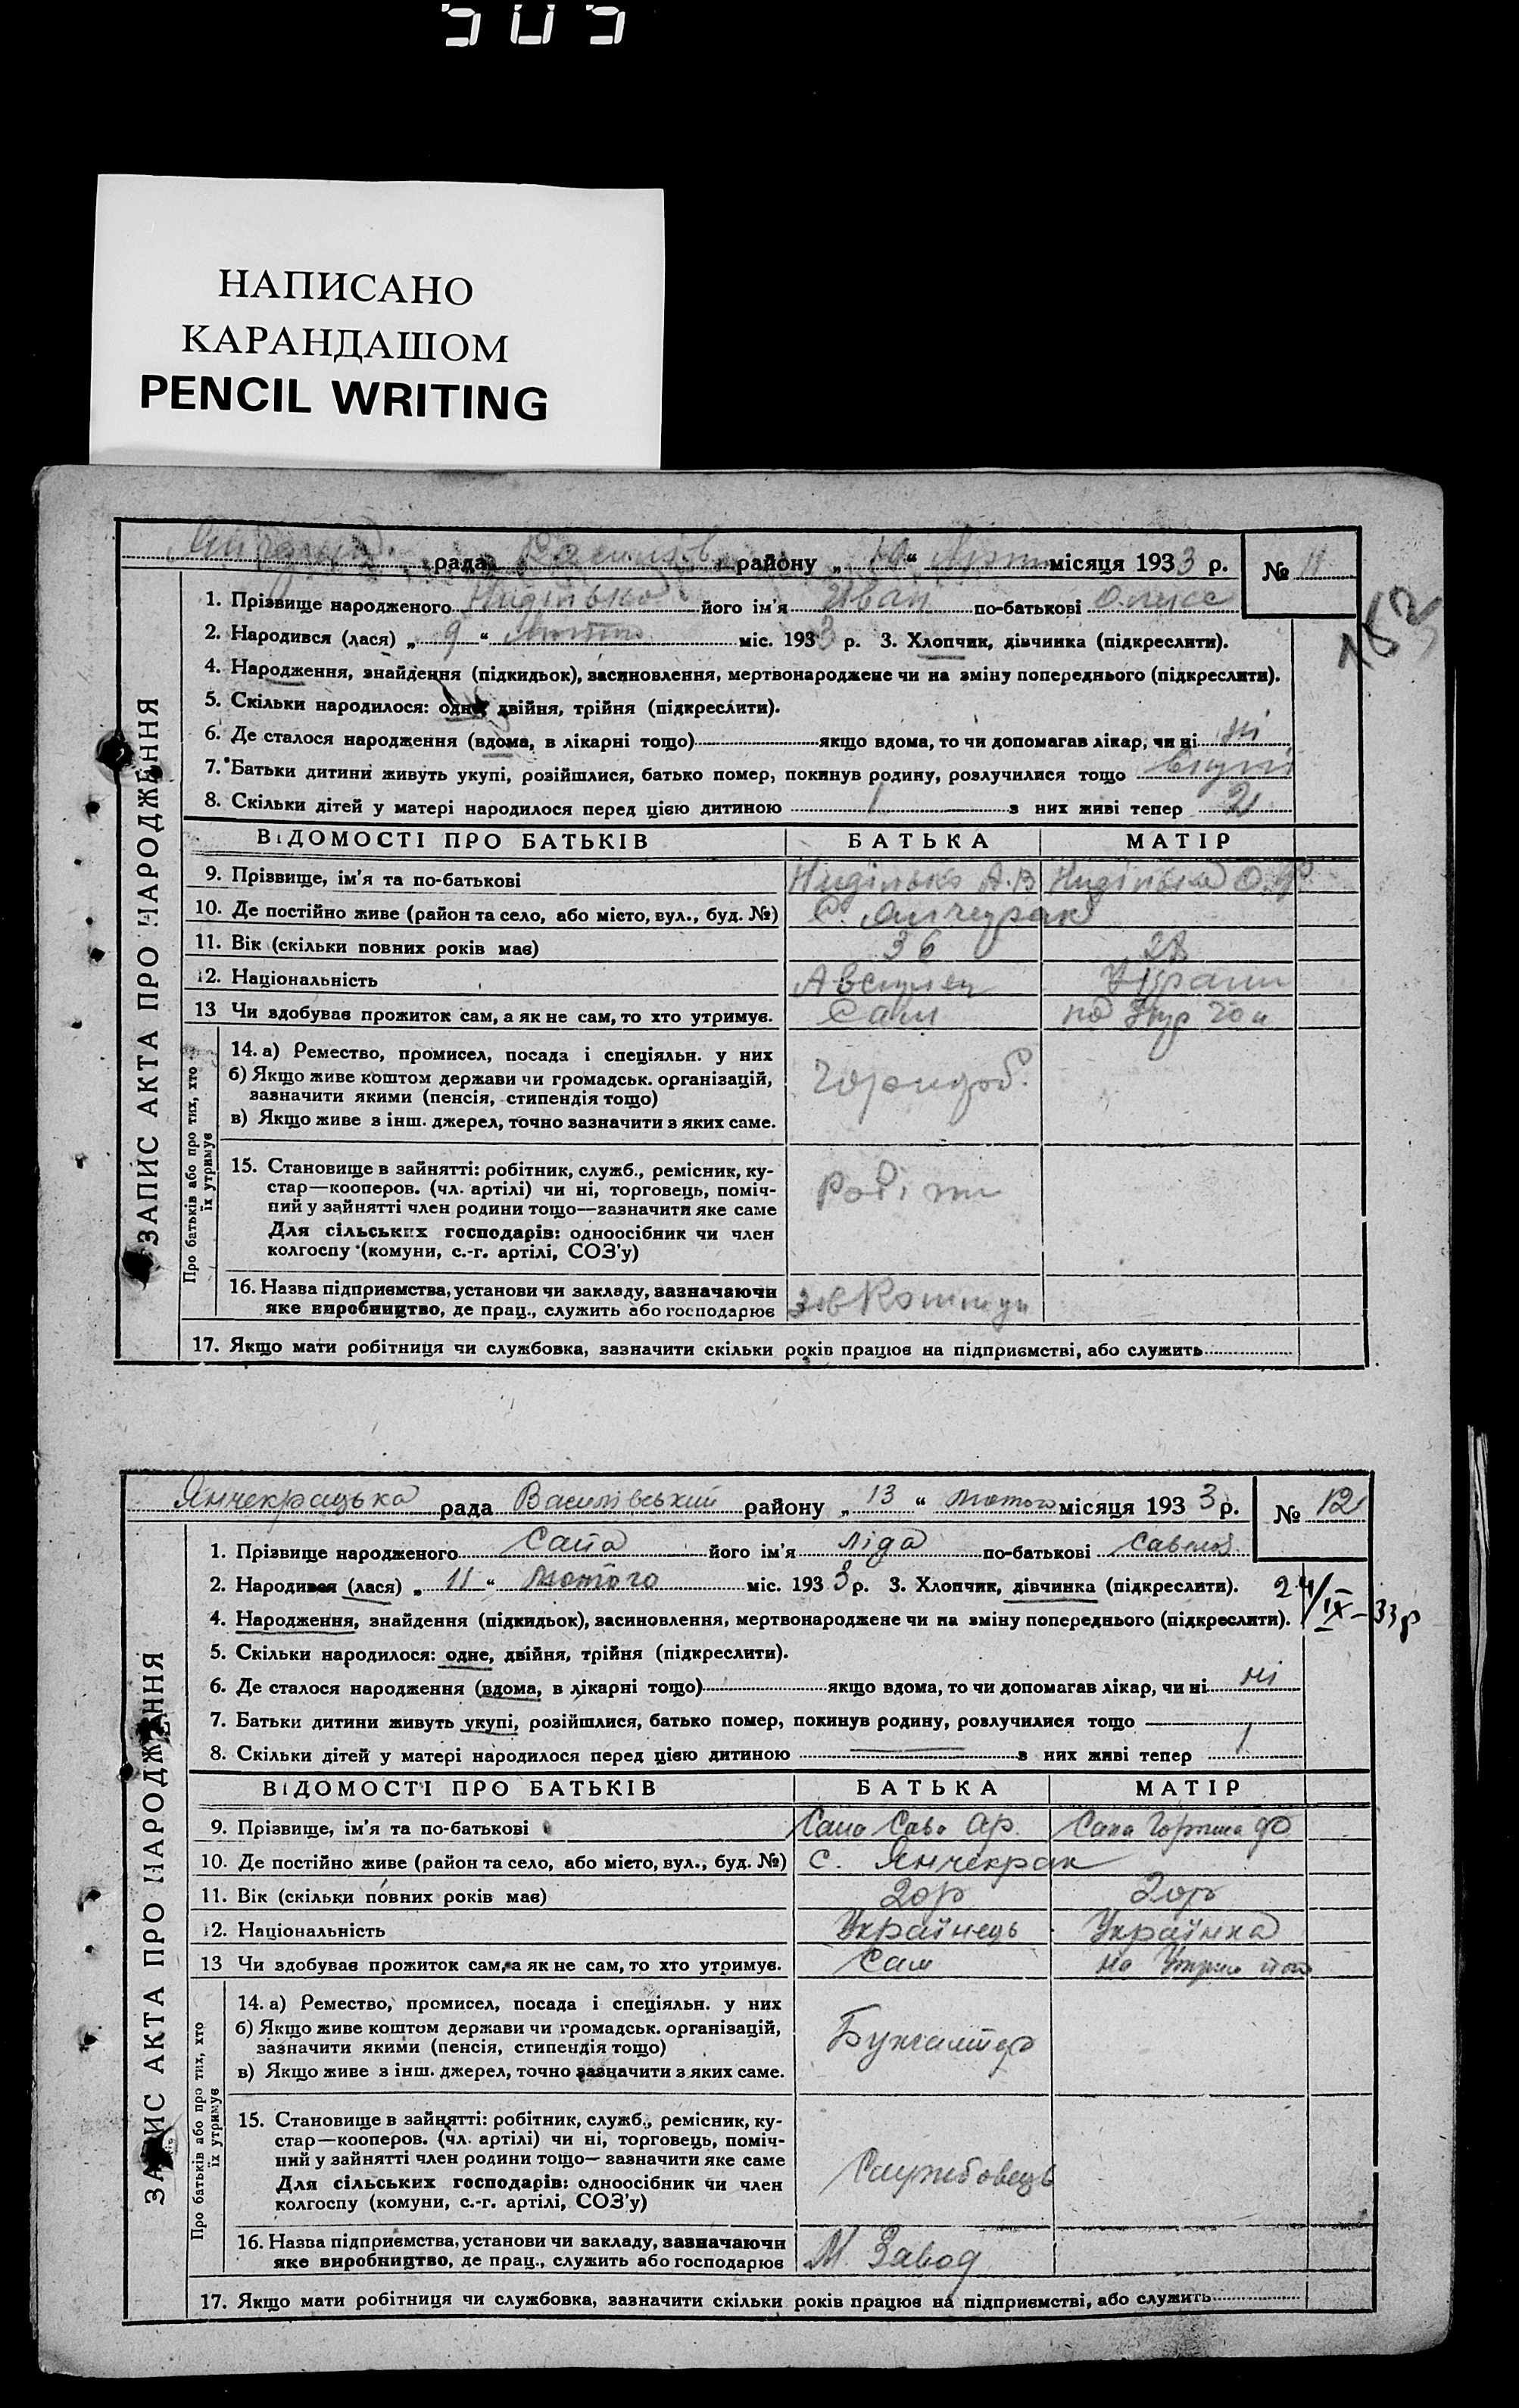 505
НАПИСАНО
КАРАНДАШОМ
PENCIL WRITING
рада району „ 10 “ місяця 1933 р. № 11
1. Прізвище народженого його ім'я Іван по-батькові
2. Народився (лася) „ 9 “ міс. 1933 р. 3. Хлопчик, дівчинка (підкреслити).
4. Народження, знайдення (підкидьок), засиновлення, мертвонароджене чи на зміну попереднього (підкреслити).
5. Скільки народилося: одне, двійня, трійня (підкреслити).
6. Де сталося народження (вдома, в лікарні тощо) якщо вдома, то чи допомагав лікар, чи ні ні
7. Батьки дитини живуть укупі, розійшлися, батько помер, покинув родину, розлучилися тощо вкупі
8. Скільки дітей у матері народилося перед цією дитиною 1 з них живі тепер 2
ЗАПИС АКТА ПРО НАРОДЖЕННЯ
ВІДОМОСТІ ПРО БАТЬКІВ БАТЬКА МАТІР
9. Прізвище, ім'я та по-батькові
10. Де постійно живе (район та село, або місто, вул., буд. №) С. Янчекрак
11. Вік (скільки повних років має) 36 28
12. Національність
13 Чи здобуває прожиток сам, а як не сам, то хто утримує. Сам
Про батьків або про тих, хто їх утримує
14. а) Ремество, промисел, посада і спеціяльн. у них
б) Якщо живе коштом держави чи громадськ. організацій,
зазначити якими (пенсія, стипендія тощо)
в) Якщо живе з інш. джерел, точно зазначити з яких саме.
15. Становище в зайнятті: робітник, служб., ремісник, ку-
стар—кооперов. (чл. артілі) чи ні, торговець, поміч-
ний у зайнятті член родини тощо—зазначити яке саме
Для сільських господарів: одноосібник чи член
колгоспу (комуни, с.-г. артілі, СОЗ'у)
16. Назва підприємства, установи чи закладу, зазначаючи
яке виробництво, де прац., служить або господарює
17. Якщо мати робітниця чи службовка, зазначити скільки років працює на підприємстві, або служить
Янчекрацька рада Василівський району „ 13 “ лютого місяця 1933 р. № 12
1. Прізвище народженого Сапа його ім'я Ліда по-батькові
2. Народився (лася) „ 11 “ Лютого міс. 1933 р. 3. Хлопчик, дівчинка (підкреслити). 24/IX-33р
4. Народження, знайдення (підкидьок), засиновлення, мертвонароджене чи на зміну попереднього (підкреслити).
5. Скільки народилося: одне, двійня, трійня (підкреслити).
6. Де сталося народження (вдома, в лікарні тощо) якщо вдома, то чи допомагав лікар, чи ні ні
7. Батьки дитини живуть укупі, розійшлися, батько помер, покинув родину, розлучилися тощо
8. Скільки дітей у матері народилося перед цією дитиною — з них живі тепер 1
ЗАПИС АКТА ПРО НАРОДЖЕННЯ
ВІДОМОСТІ ПРО БАТЬКІВ БАТЬКА МАТІР
9. Прізвище, ім'я та по-батькові Сапа Сава Ар. Сапа
10. Де постійно живе (район та село, або місто, вул., буд. №) с. Янчекрак
11. Вік (скільки повних років має) 20р 20р
12. Національність Українець Українка
13 Чи здобуває прожиток сам, а як не сам, то хто утримує. Сам на
Про батьків або про тих, хто їх утримує
14. а) Ремество, промисел, посада і спеціяльн. у них
б) Якщо живе коштом держави чи громадськ. організацій,
зазначити якими (пенсія, стипендія тощо)
в) Якщо живе з інш. джерел, точно зазначити з яких саме.
Бухгалтер
15. Становище в зайнятті: робітник, служб., ремісник, ку-
стар—кооперов. (чл. артілі) чи ні, торговець, поміч-
ний у зайнятті член родини тощо—зазначити яке саме
Для сільських господарів: одноосібник чи член
колгоспу (комуни, с.-г. артілі, СОЗ'у)
Службовець
16. Назва підприємства, установи чи закладу, зазначаючи
яке виробництво, де прац., служить або господарює
М Завод
17. Якщо мати робітниця чи службовка, зазначити скільки років працює на підприємстві, або служить